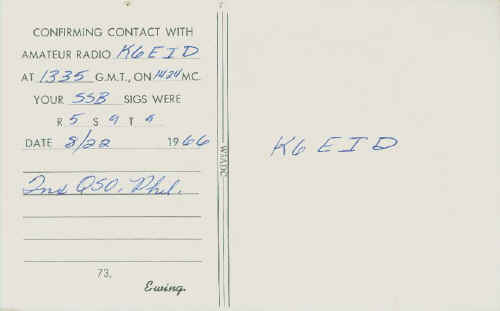 CONFIRMING CONTACT WITH
AMATEUR RADIO K6EID
AT 1335 G.M.T., ON 1424 MC.
YOUR SSB SIGS WERE
R 5 S 9 T
DATE 8/22 1966
2nd QSO, Phil.
73,
Ewing.
K6EID